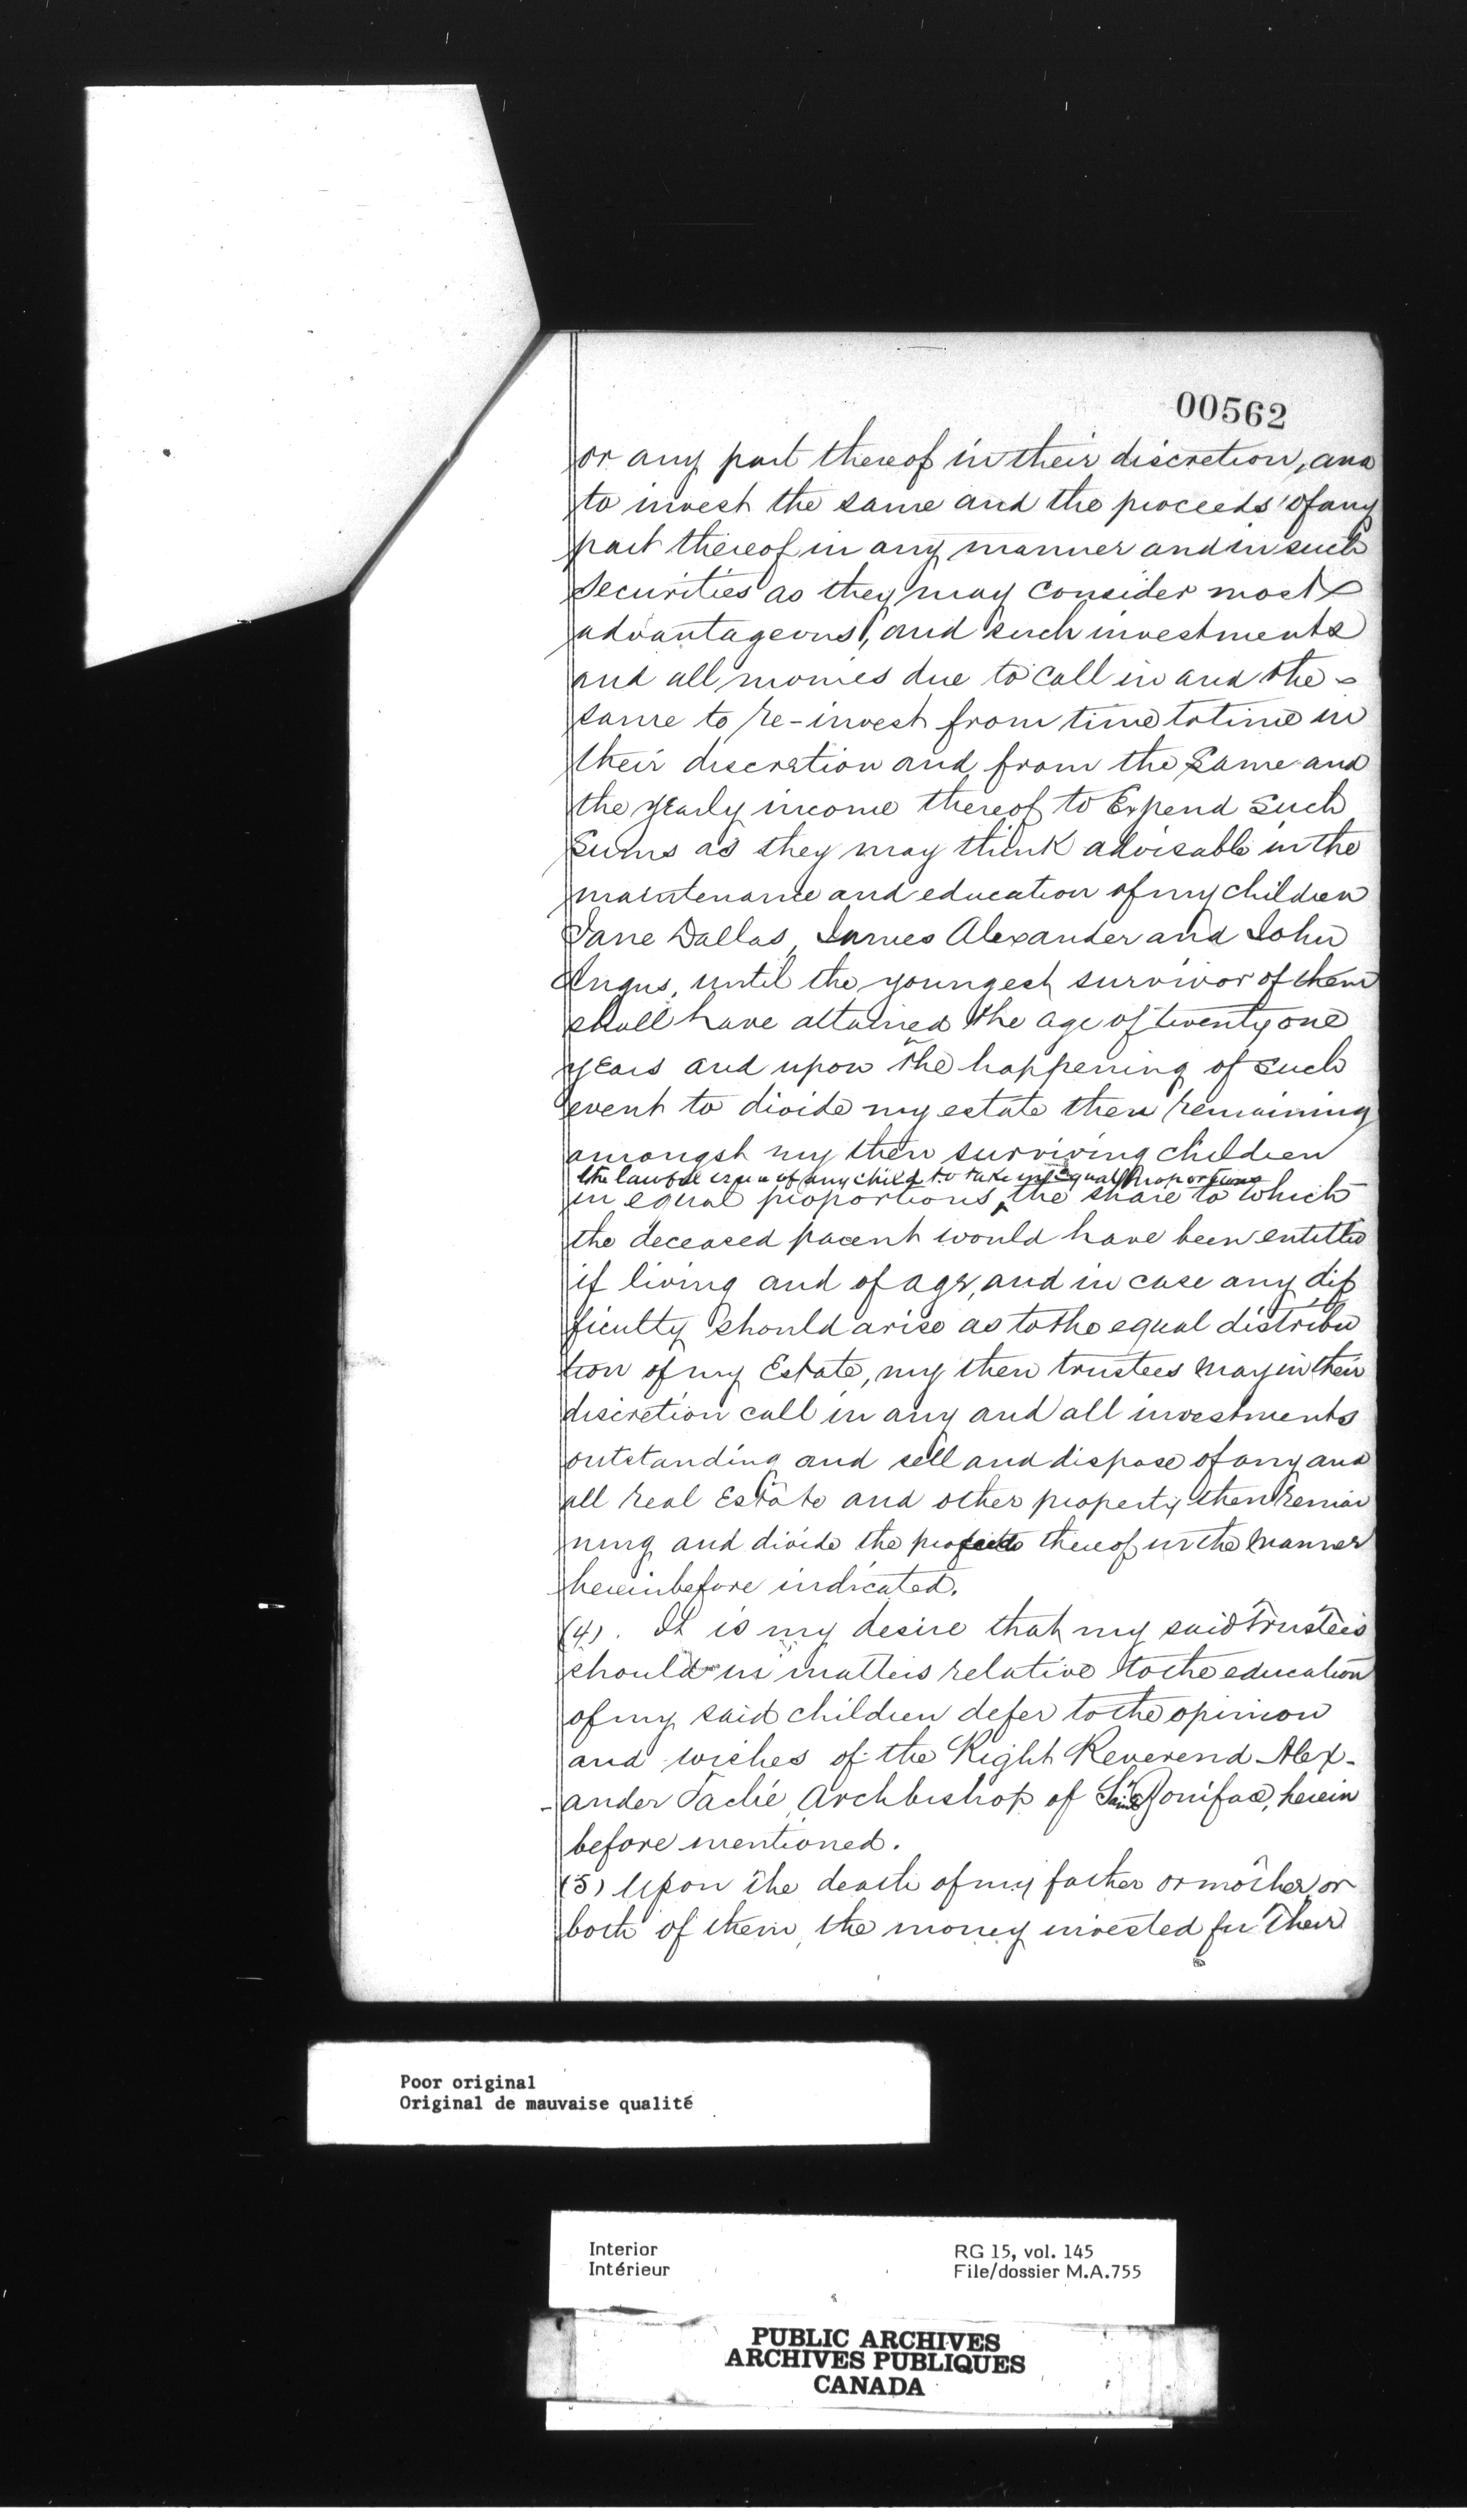 00562
or any part thereof in their discretion, and
to invest the same and the proceeds of any
part thereof in any manner and in such
securities as they may consider most
advantageous, and such investments
and all monies due to call in and the -
same to re-invest from time to time in
their discretion and from the same and
the yearly income thereof to Expend such
sums as they may think advisable in the
maintenance and education of my children
Jane Dallas, James Alexander and John
Angus, until the youngest survivor of them
shall have attained the age of twenty one
years and upon the happening of such
event to divide my estate then remaining
amongst my then surviving children
the lawful issue of any child to take in Equal Proportions
in equal proportions, the share to which
the deceased parent would have been entitled
if living and of age, and in case any dif
ficulty should arise as to the equal distribu
tion of my Estate, my then trustees may in their
discretion call in any and all investments
outstanding and sell and dispose of any and
all real Estate and other property then remai
ning and divide the proceeds thereof in the manner
hereinbefore indicated.
(4). It is my desire that my said Trustees
should in matters relative to the education
of my said children defer to the opinion
and wishes of the Right Reverend Alex-
-ander Taché, Archbishop of Saint Boniface, herein
before mentioned.
(5) Upon the death of my father or mother, or
both of them, the money invested for their
Poor original
Original de mauvaise qualité
Interior
Intérieur
RG 15, vol. 145
File/dossier M.A.755
PUBLIC ARCHIVES
ARCHIVES PUBLIQUES
CANADA